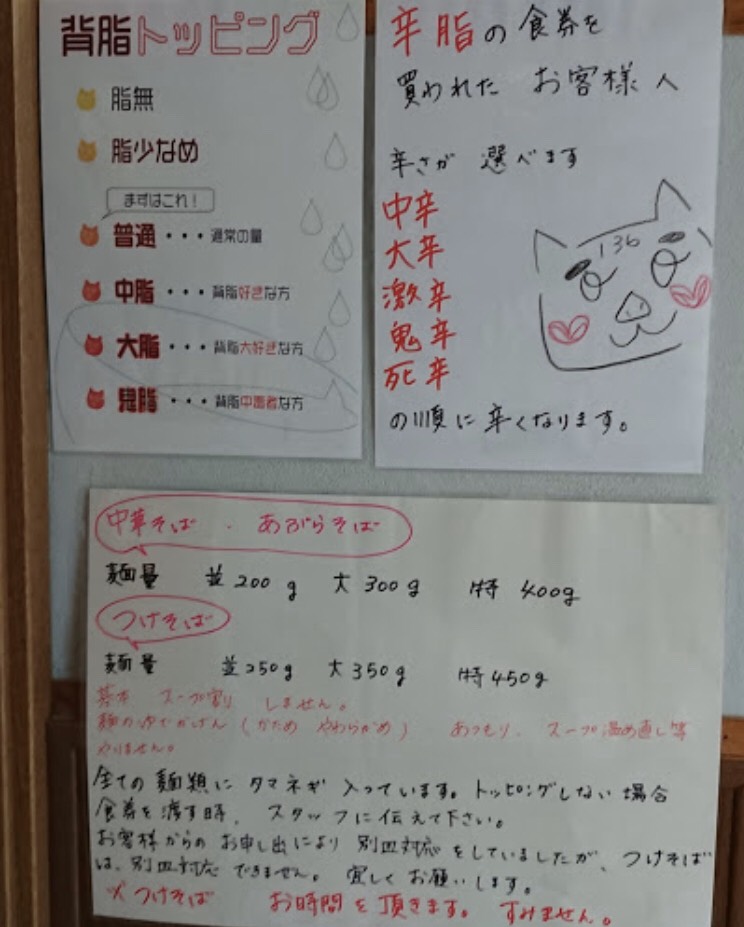 背脂トッピング
脂無
脂少なめ
まずはこれ！
普通・・・通常の量
中脂・・・背脂好きな方
大脂・・・背脂大好きな方
鬼脂・・・背脂中毒者な方
辛脂の食券を
買われた お客様へ
辛さが 選べます
中辛
大辛
激辛
鬼辛
死辛
の順に辛くなります。
中華そば ・ あぶらそば
麺量 並200g 大300g 特400g
つけそば
麺量 並250g 大350g 特450g
基本 スープ割り しません。
麺のゆでかげん(かため やわらかめ) あつもり、スープ温め直し等
やりません。
全ての麺類に タマネギ 入っています。トッピングしない場合
食券を渡す時、スタッフに伝えて下さい。
お客様からの お申し出により 別皿対応をしていましたが、つけそば
は、別皿対応 できません。 宜しくお願いします。
※つけそば お時間を頂きます。 すみません。